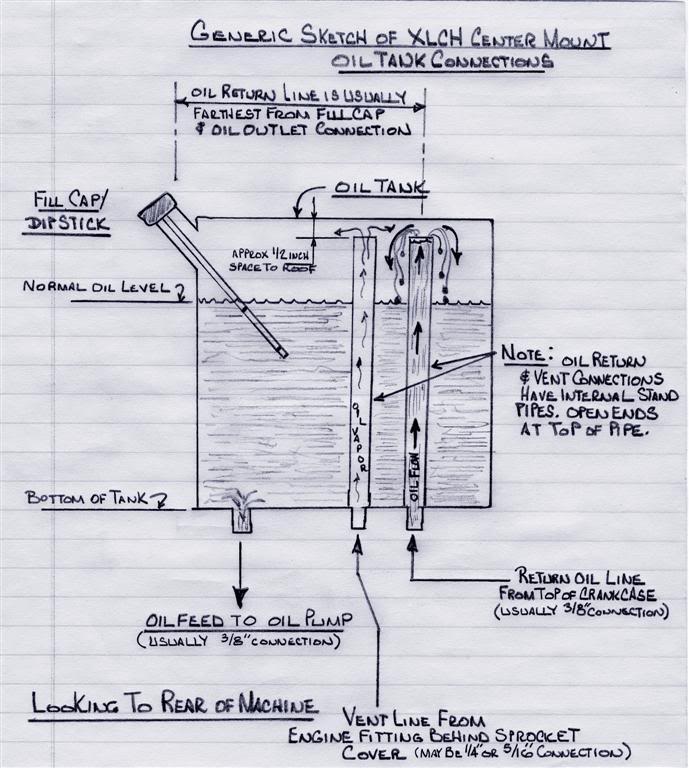 GENERIC SKETCH OF XLCH CENTER MOUNT
OIL TANK CONNECTIONS
OIL RETURN LINE IS USUALLY
FARTHEST FROM FILL CAP
& OIL OUTLET CONNECTION
OIL TANK
FILL CAP/
DIPSTICK
APPROX 1/2 INCH
SPACE TO ROOF
NORMAL OIL LEVEL
NOTE: OIL RETURN
& VENT CONNECTIONS
HAVE INTERNAL STAND
PIPES. OPEN ENDS
AT TOP OF PIPE.
OIL VAPOR
OIL FLOW
BOTTOM OF TANK
RETURN OIL LINE
FROM TOP OF CRANKCASE
(USUALLY 3/8" CONNECTION)
OIL FEED TO OIL PUMP
(USUALLY 3/8" CONNECTION)
LOOKING TO REAR OF MACHINE
VENT LINE FROM
ENGINE FITTING BEHIND SPROCKET
COVER (MAY BE 1/4" OR 5/16" CONNECTION)